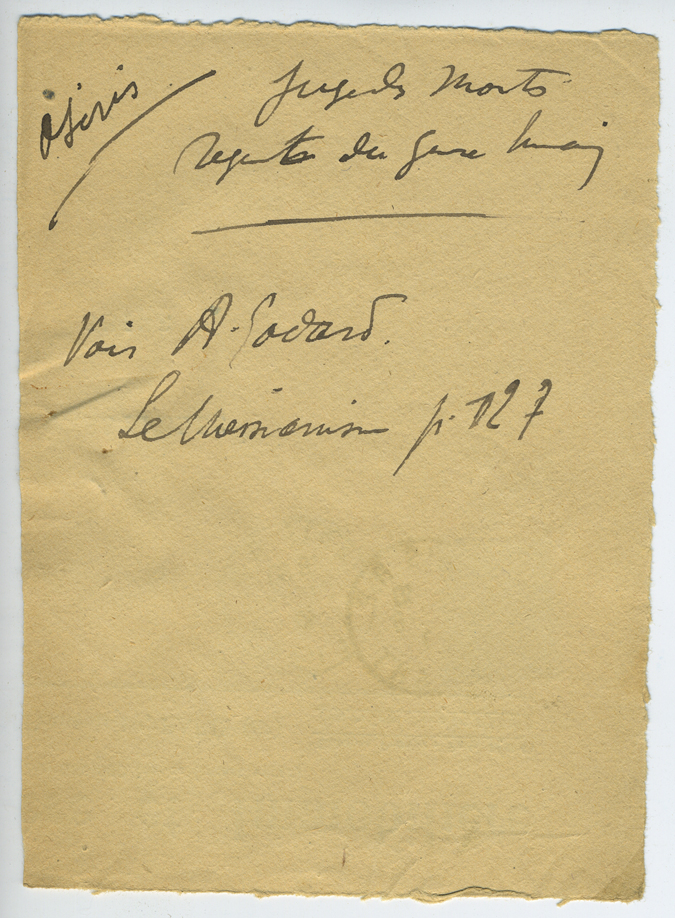 Osiris
Juge des Morts
du genre humain
Voir A. Godard.
Le Messianisme p. 127